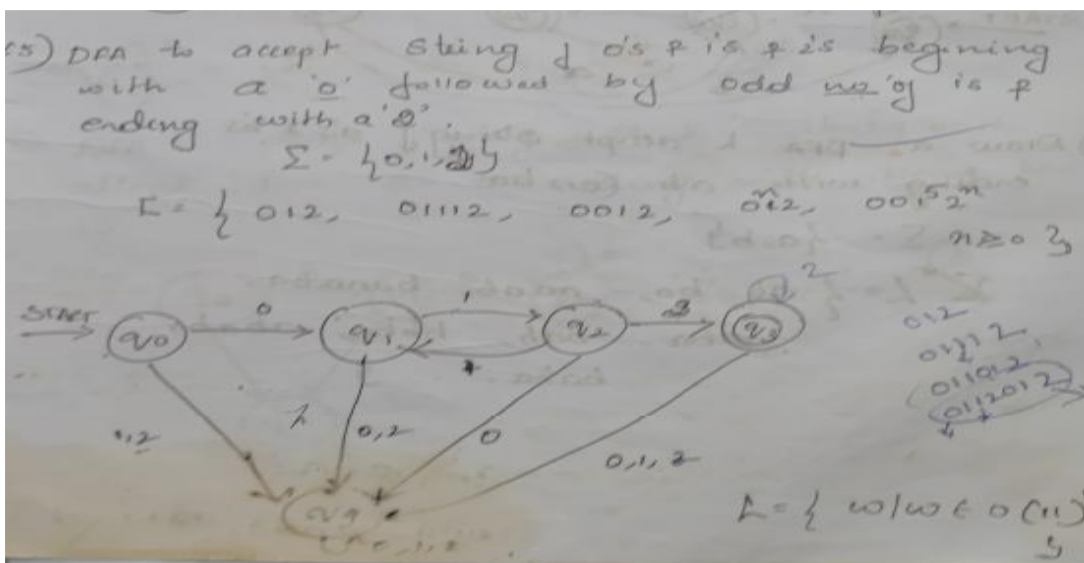 (5) DFA to accept string of 0's & 1's & 2's begining
with a '0' followed by odd no of 1's &
ending with a '2'.
Σ = {0,1,2}
L = { 012, 01112, 0012,
n≥0 }
START
0
1
2
2
q0
q1
q2
q3
1,2
0,2
0
0,1,2
012
01112
011012
0112012
q4
0,1,2
L = { w/w ∈ 0(11)
}